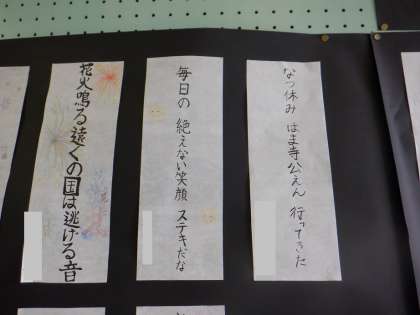 なつ休み はま寺公えん 行ってきた
毎日の 絶えない笑顔 ステキだな
花火鳴る遠くの国は逃げる音